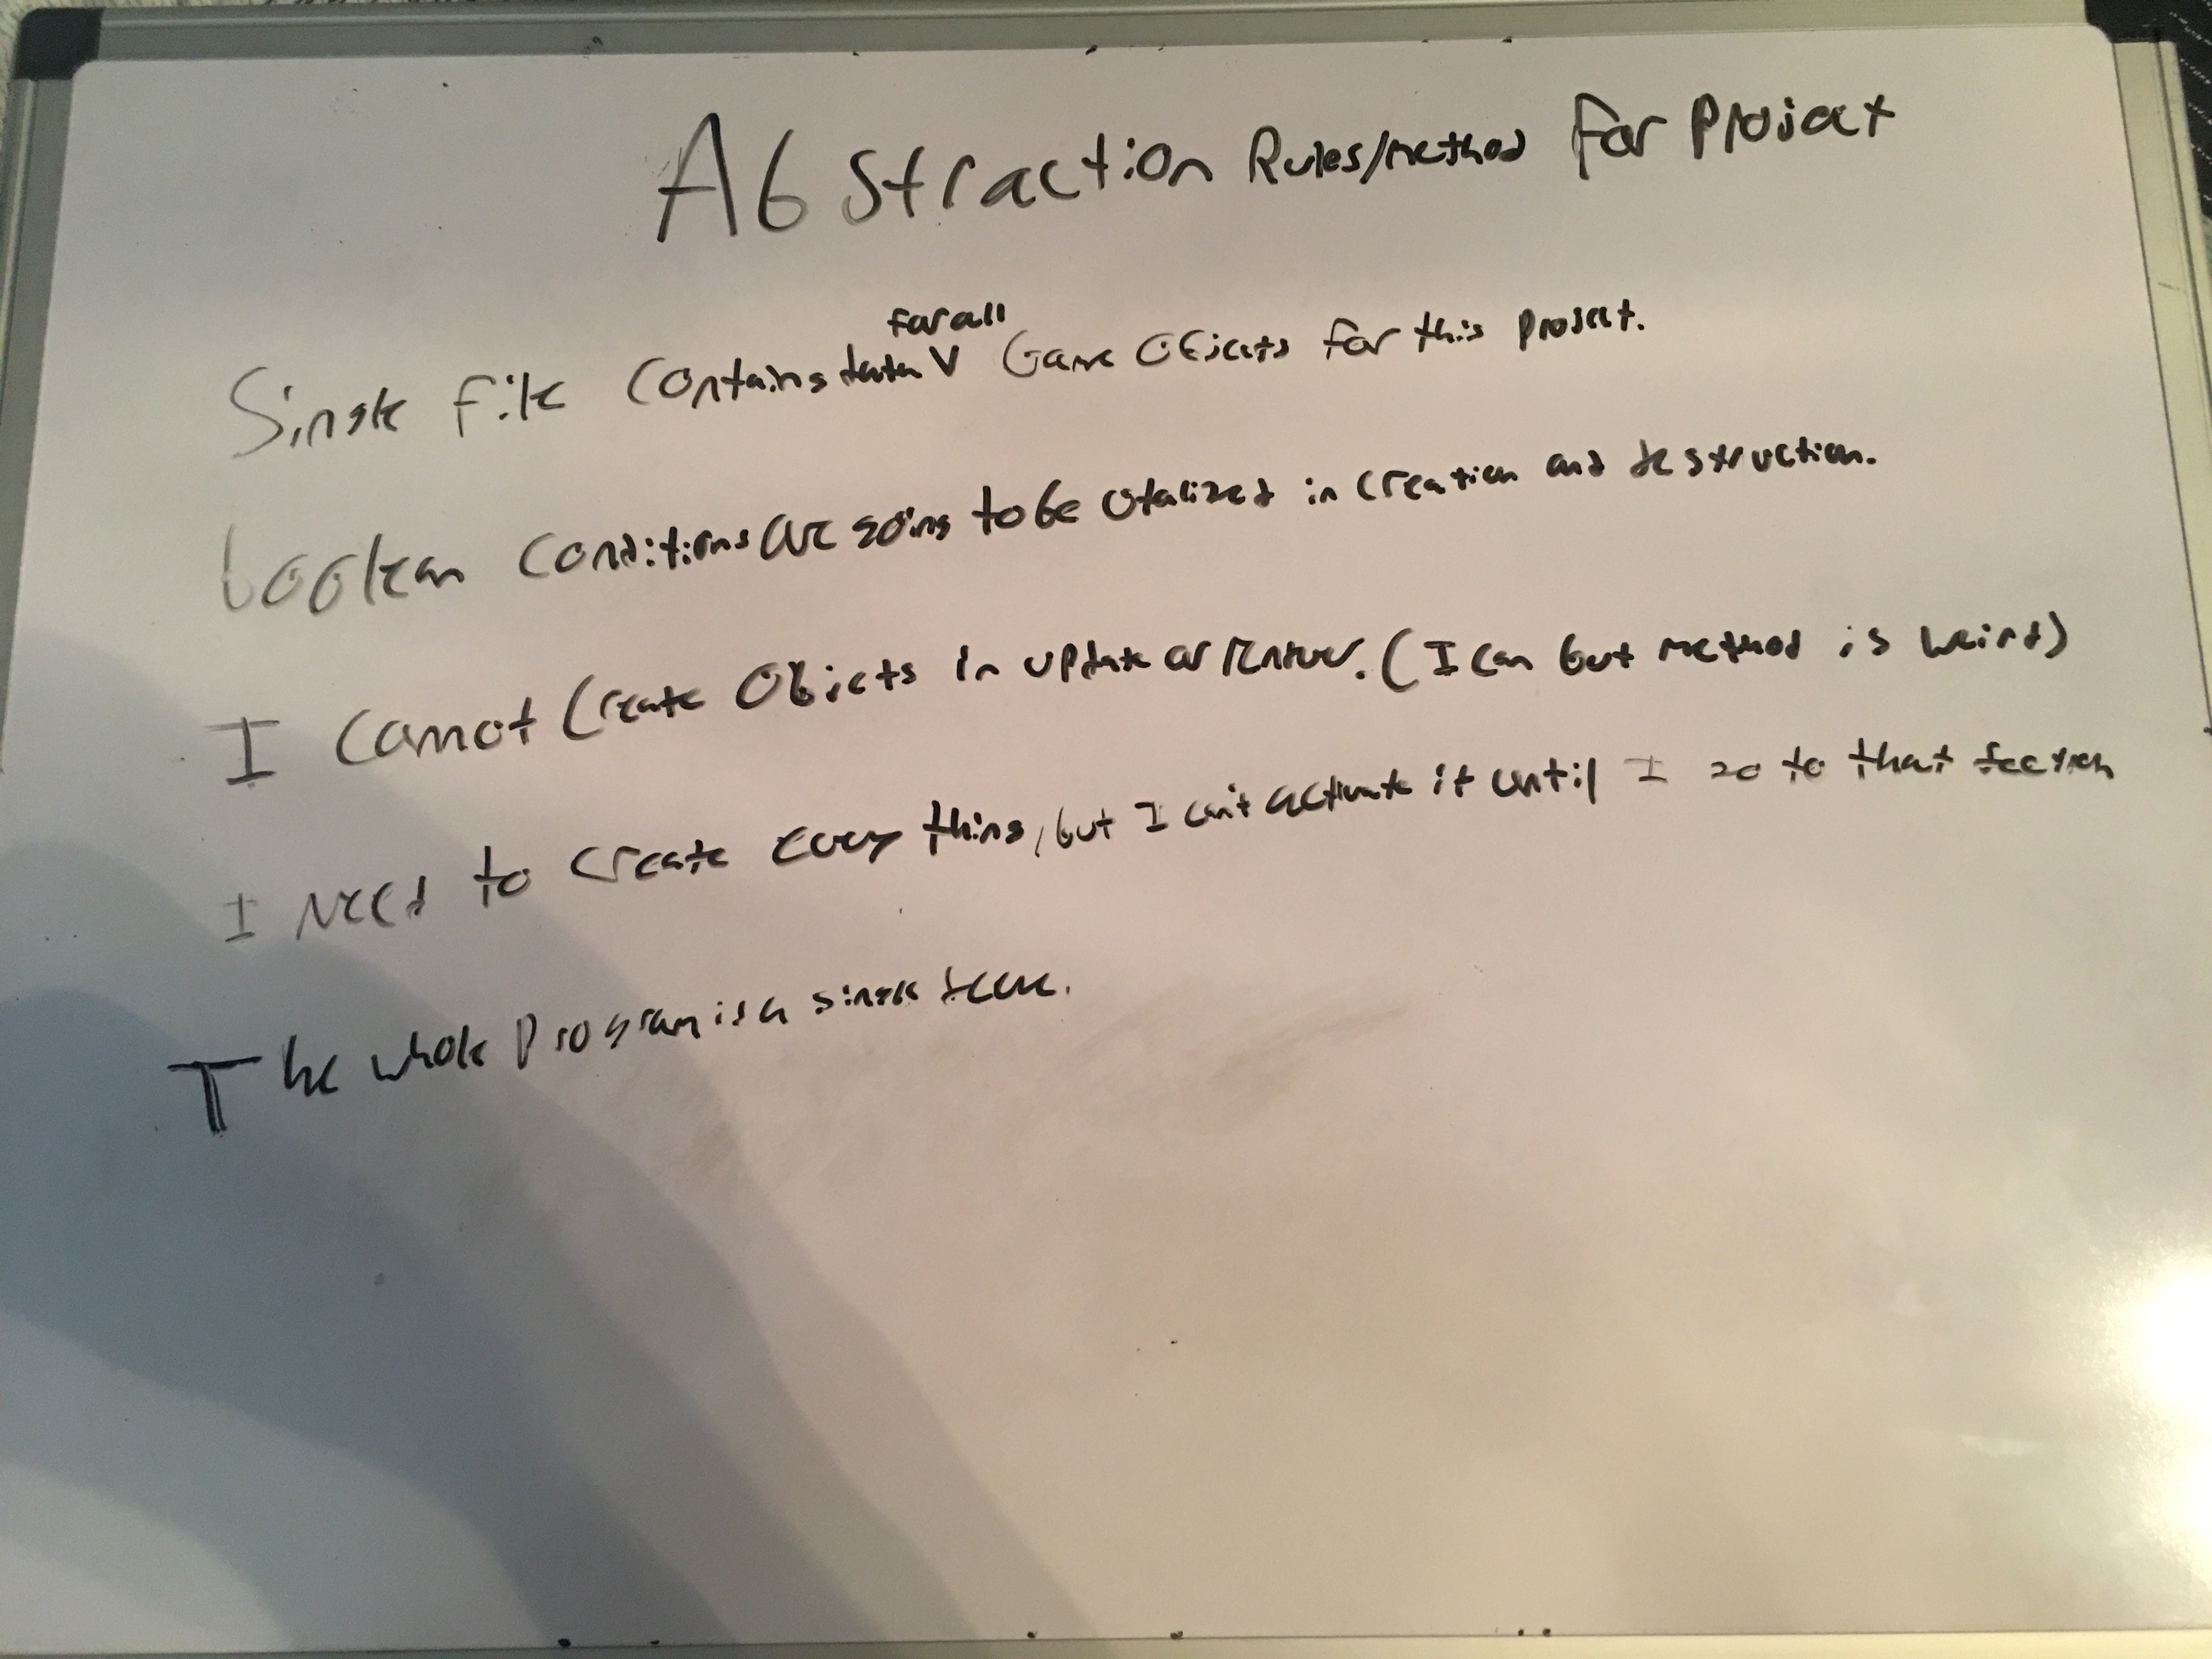 Abstraction Rules/method for Project
for all
Single file contains data V Game Objects for this project.
boolean conditions are going to be utalized in creation and destruction.
I cannot create Objects in update or render. (I can but method is weird)
I need to create every thing, but I can't activate it until I go to that section
The whole program is a single